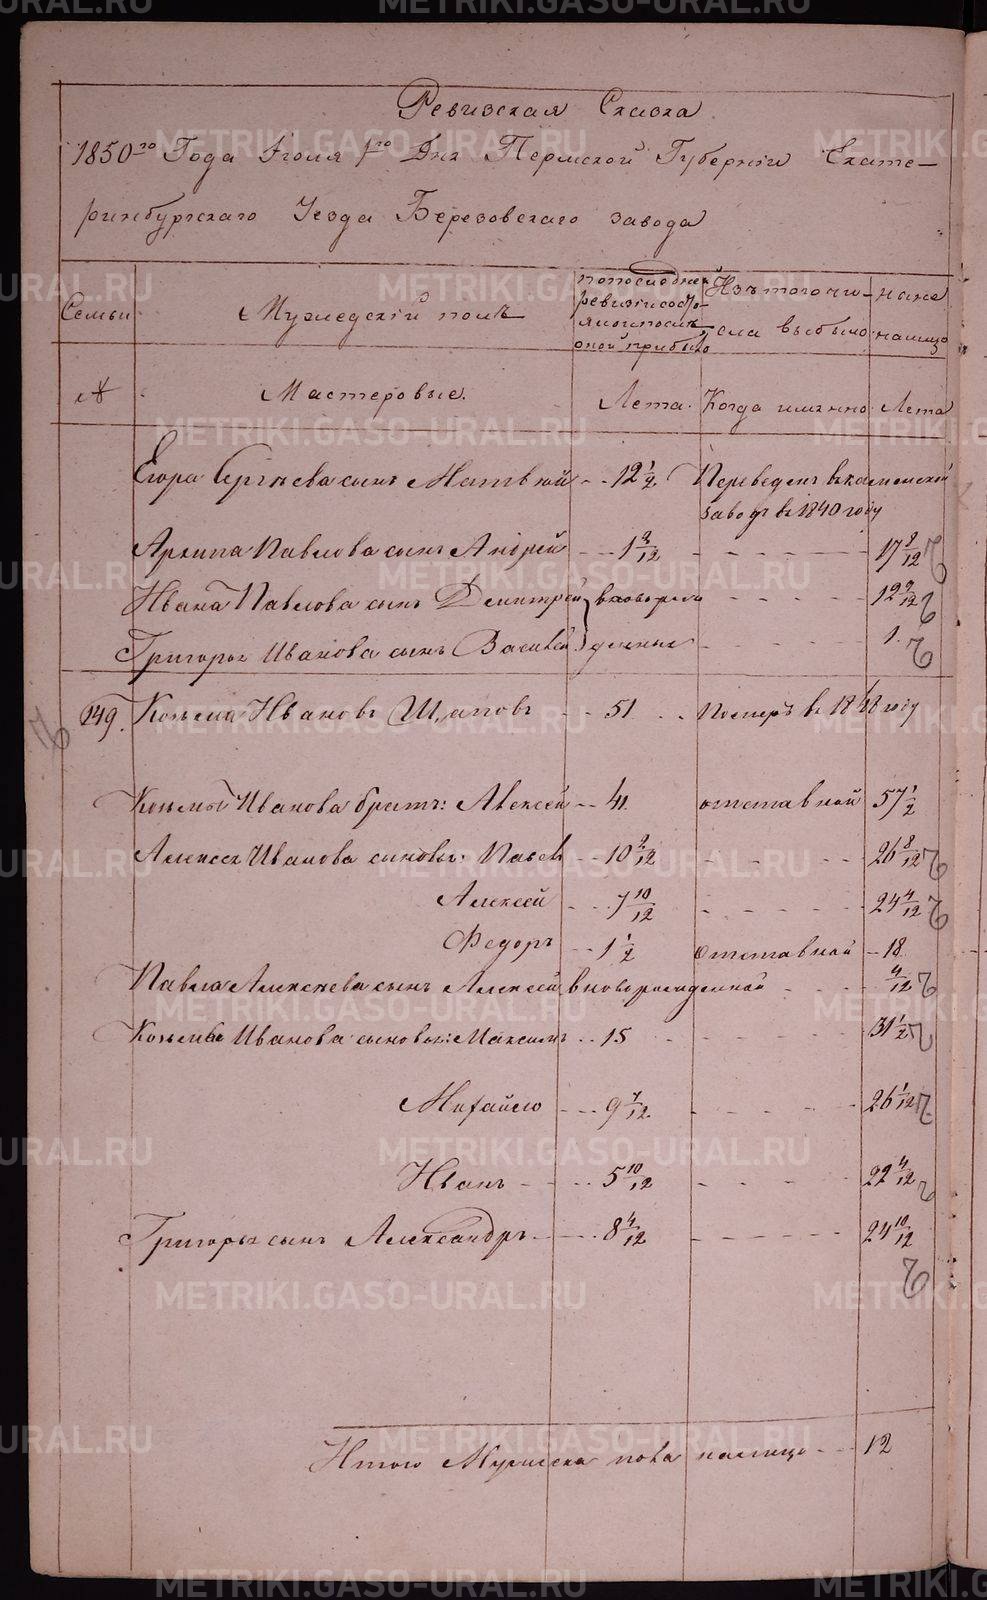 Ревизская Сказка
1850го Года Июля 1го Дня Пермской Губернiи Екате-
ринбургскаго Уезда Березовскаго завода
Семьи
Мужедскiй полъ
Изътогочи-
сла выбыло
ныне
налицо
№
Мастеровые.
Лета
Когда имянно
Лета
Егора Сергѣева сынъ Матвей 12 1/2 Переведенъ вкаменской
заводъ въ 1840 году
Архипа Павлова сынъ Андрей 1 17
Ивана Павлова сынъ Дмитрей вновьрож 12
Григорья Иванова сынъ Василей денные 1
149. Козьма Ивановъ 51 Померъ въ 1848 году
Козьмы Иванова братъ: Алексей 41 отставной 57 1/2
Алексея Иванова сыновья: Павелъ 10 26 8/12
Алексей 7 10/12 24 4/12
Федоръ 1 1/2 отставной 18
Павла Алексеева сынъ Алексей вновьрожденной 4/12
Козьмы Иванова сыновья: Максимъ 15 31 1/2
Михайло 9 7/12 26 1/12
Иванъ 5 10/12 22 4/12
Григорья сынъ Александръ 8 4/12 24 10/12
Итого Мужеска пола налицо 12
METRIKI.GASO-URAL.RU